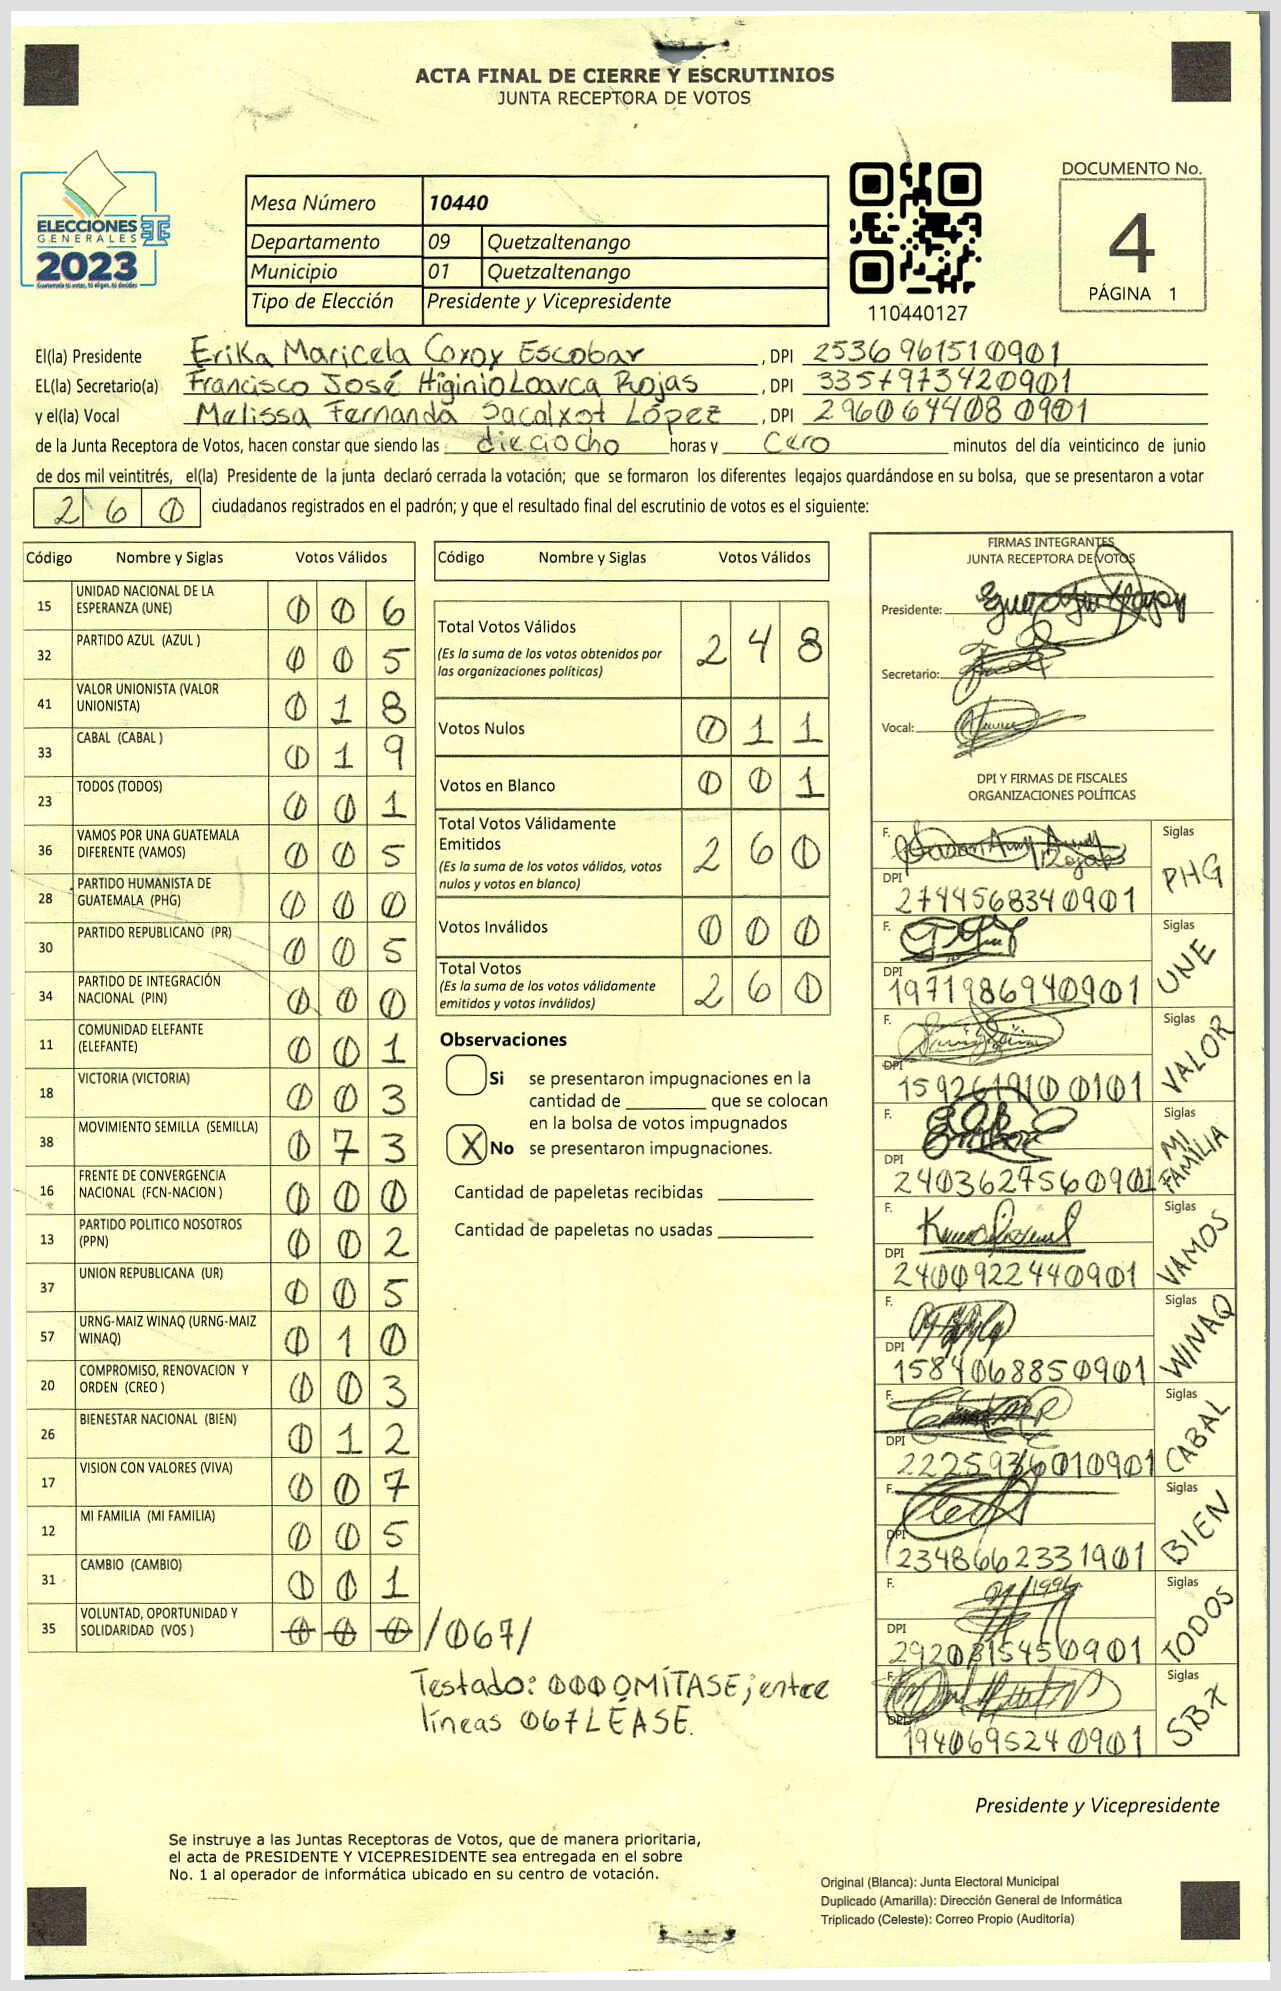 ACTA FINAL DE CIERRE Y ESCRUTINIOS
JUNTA RECEPTORA DE VOTOS
ELECCIONES
GENERALES
2023
Guatemala tú votas, tú eliges, tú decides
Mesa Número 10440
Departamento 09 Quetzaltenango
Municipio 01 Quetzaltenango
Tipo de Elección Presidente y Vicepresidente
110440127
DOCUMENTO No.
4
PÁGINA 1
El(la) Presidente Erika Maricela Coxoy Escobar , DPI 2536961510901
EL(la) Secretario(a) Francisco José Higinio Loarca Rojas , DPI 3357973420901
y el(la) Vocal Melissa Fernanda Sacalxot López , DPI 2960644080901
de la Junta Receptora de Votos, hacen constar que siendo las dieciocho horas y cero minutos del día veinticinco de junio
de dos mil veintitrés, el(la) Presidente de la junta declaró cerrada la votación; que se formaron los diferentes legajos guardándose en su bolsa, que se presentaron a votar
260 ciudadanos registrados en el padrón; y que el resultado final del escrutinio de votos es el siguiente:
Código Nombre y Siglas Votos Válidos
15 UNIDAD NACIONAL DE LA
ESPERANZA (UNE) 0 0 6
32 PARTIDO AZUL (AZUL ) 0 0 5
41 VALOR UNIONISTA (VALOR
UNIONISTA) 0 1 8
33 CABAL (CABAL ) 0 1 9
23 TODOS (TODOS) 0 0 1
36 VAMOS POR UNA GUATEMALA
DIFERENTE (VAMOS) 0 0 5
28 PARTIDO HUMANISTA DE
GUATEMALA (PHG) 0 0 0
30 PARTIDO REPUBLICANO (PR) 0 0 5
34 PARTIDO DE INTEGRACIÓN
NACIONAL (PIN) 0 0 0
11 COMUNIDAD ELEFANTE
(ELEFANTE) 0 0 1
18 VICTORIA (VICTORIA) 0 0 3
38 MOVIMIENTO SEMILLA (SEMILLA) 0 7 3
16 FRENTE DE CONVERGENCIA
NACIONAL (FCN-NACION ) 0 0 0
13 PARTIDO POLITICO NOSOTROS
(PPN) 0 0 2
37 UNION REPUBLICANA (UR) 0 0 5
57 URNG-MAIZ WINAQ (URNG-MAIZ
WINAQ) 0 1 0
20 COMPROMISO, RENOVACION Y
ORDEN (CREO ) 0 0 3
26 BIENESTAR NACIONAL (BIEN) 0 1 2
17 VISION CON VALORES (VIVA) 0 0 7
12 MI FAMILIA (MI FAMILIA) 0 0 5
31 CAMBIO (CAMBIO) 0 0 1
35 VOLUNTAD, OPORTUNIDAD Y
SOLIDARIDAD (VOS ) 0 0 0 /067/
Testado: 000 OMÍTASE; entre
líneas 067 LÉASE.
Código Nombre y Siglas Votos Válidos
Total Votos Válidos 2 4 8
(Es la suma de los votos obtenidos por
las organizaciones políticas)
Votos Nulos 0 1 1
Votos en Blanco 0 0 1
Total Votos Válidamente
Emitidos 2 6 0
(Es la suma de los votos válidos, votos
nulos y votos en blanco)
Votos Inválidos 0 0 0
Total Votos
(Es la suma de los votos válidamente
emitidos y votos inválidos) 2 6 0
Observaciones
Si se presentaron impugnaciones en la
cantidad de ________ que se colocan
en la bolsa de votos impugnados
X No se presentaron impugnaciones.
Cantidad de papeletas recibidas
Cantidad de papeletas no usadas
FIRMAS INTEGRANTES
JUNTA RECEPTORA DE VOTOS
Presidente:
Secretario:
Vocal:
DPI Y FIRMAS DE FISCALES
ORGANIZACIONES POLÍTICAS
F. Siglas
DPI 2744568340901 PHG
F. Siglas
DPI 1971986940901 UNE
F. Siglas
DPI 1592619100101 VALOR
F. Siglas
DPI 2403627560901 MI FAMILIA
F. Siglas
DPI 2400922440901 VAMOS
F. Siglas
DPI 1584068850901 WINAQ
F. Siglas
DPI 2225936010901 CABAL
F. Siglas
DPI 2348662331901 BIEN
F. Siglas
DPI 2920815450901 TODOS
F. Siglas
DPI 1940695240901 SBX
Presidente y Vicepresidente
Se instruye a las Juntas Receptoras de Votos, que de manera prioritaria,
el acta de PRESIDENTE Y VICEPRESIDENTE sea entregada en el sobre
No. 1 al operador de informática ubicado en su centro de votación.
Original (Blanca): Junta Electoral Municipal
Duplicado (Amarilla): Dirección General de Informática
Triplicado (Celeste): Correo Propio (Auditoría)